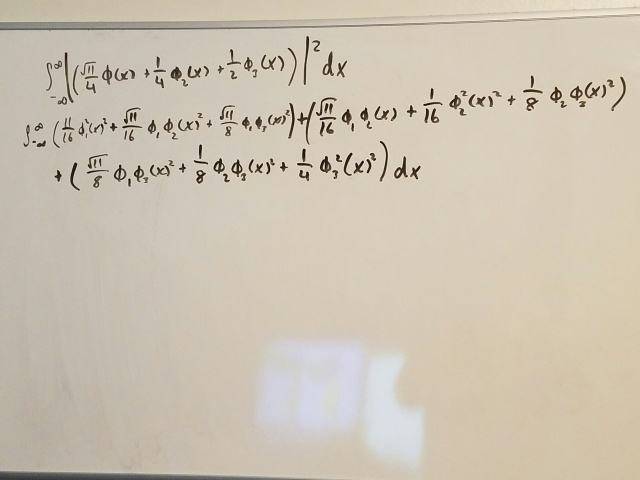 ∫_{-∞}^{∞} |(√11/4 ϕ(x) + 1/4 ϕ₂(x) + 1/2 ϕ₃(x))|² dx
∫_{-∞}^{∞} (11/16 ϕ₁²(x)² + √11/16 ϕ₁ϕ₂(x)² + √11/8 ϕ₁ϕ₃(x)²) + (√11/16 ϕ₁ϕ₂(x) + 1/16 ϕ₂²(x)² + 1/8 ϕ₂ϕ₃(x)²)
+ (√11/8 ϕ₁ϕ₃(x)² + 1/8 ϕ₂ϕ₃(x)² + 1/4 ϕ₃²(x)²) dx